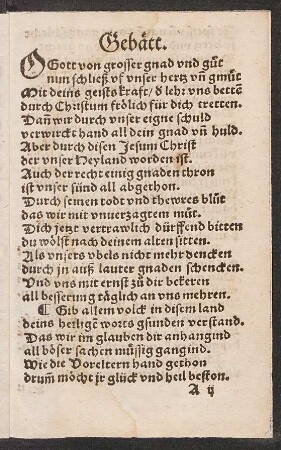 Gebått.
O Gott von grosser gnad vnd gůt
nun schließ vf vnser hertz vn̄ gmůt
Mit deins geists krafft / d lehr vns bettē
durch Christum frölich für dich tretten.
Dañ wir durch vnser eigne schuld
verwirckt hand all dein gnad vñ huld.
Aber durch disen Jesum Christ
der vnser Heyland worden ist.
Auch der recht einig gnaden thron
ist vnser sünd all abgethon.
Durch seinen todt vnd thewres blůt
das wir mit vnuerzagtem můt.
Dich jetzt vertrawlich dürffend bitten
du wölst nach deinem alten sitten.
Als vnsers vbels nicht mehr dencken
durch jn auß lauter gnaden schencken.
Vnd vns mit ernst zů dir bekeren
all besserung täglich an vns mehren.
¶ Gib allem volck in disem land
deins heiligē worts gsunden verstand.
Das wir im glauben dir anhangind
all böser sachen můssig gangind.
Wie die Voreltern hand gethon
drum̄ möcht jr glück vnd heil beston.
A ij